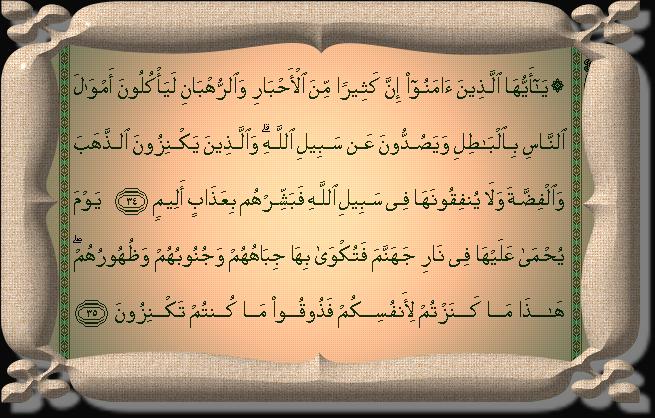 ۞ يَـٰٓأَيُّهَا ٱلَّذِينَ ءَامَنُوٓا۟ إِنَّ كَثِيرًا مِّنَ ٱلْأَحْبَارِ وَٱلرُّهْبَانِ لَيَأْكُلُونَ أَمْوَٰلَ
ٱلنَّاسِ بِٱلْبَـٰطِلِ وَيَصُدُّونَ عَن سَبِيلِ ٱللَّهِ ۗ وَٱلَّذِينَ يَكْنِزُونَ ٱلذَّهَبَ
وَٱلْفِضَّةَ وَلَا يُنفِقُونَهَا فِى سَبِيلِ ٱللَّهِ فَبَشِّرْهُم بِعَذَابٍ أَلِيمٍ ٣٤ يَوْمَ
يُحْمَىٰ عَلَيْهَا فِى نَارِ جَهَنَّمَ فَتُكْوَىٰ بِهَا جِبَاهُهُمْ وَجُنُوبُهُمْ وَظُهُورُهُمْ ۖ
هَـٰذَا مَا كَنَزْتُمْ لِأَنفُسِكُمْ فَذُوقُوا۟ مَا كُنتُمْ تَكْنِزُونَ ٣٥